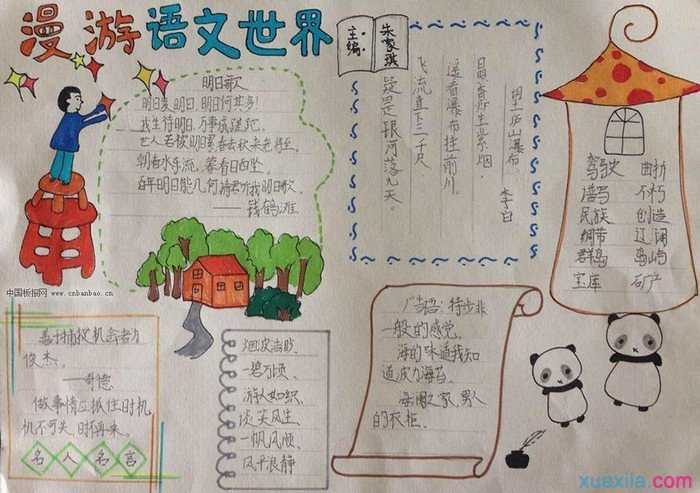 漫游语文世界
主编:
朱家琪
明日歌
明日复明日,明日何其多!
我生待明日,万事成蹉跎。
世人若被明日累,春去秋来老将至。
朝看水东流,暮看日西坠。
百年明日能几何?请君听我明日歌。
——钱鹤滩
望庐山瀑布
李白
日照香炉生紫烟,
遥看瀑布挂前川。
飞流直下三千尺,
疑是银河落九天。
驾驶 曲折
谱写 不朽
民族 创造
绸带 辽阔
群岛 岛屿
宝库 矿产
中国板报网
www.cnbanbao.cn
善于捕捉机会者为
俊杰。
——哥德
做事情应抓住时机
机不可失,时不再来。
名人名言
烟波浩渺
一碧万顷
游人如织
谈笑风生
一帆风顺
风平浪静
广告语:特步非
一般的感觉。
海的味道我知
道波力海苔。
海澜之家,男人
的衣柜。
xuexila.com